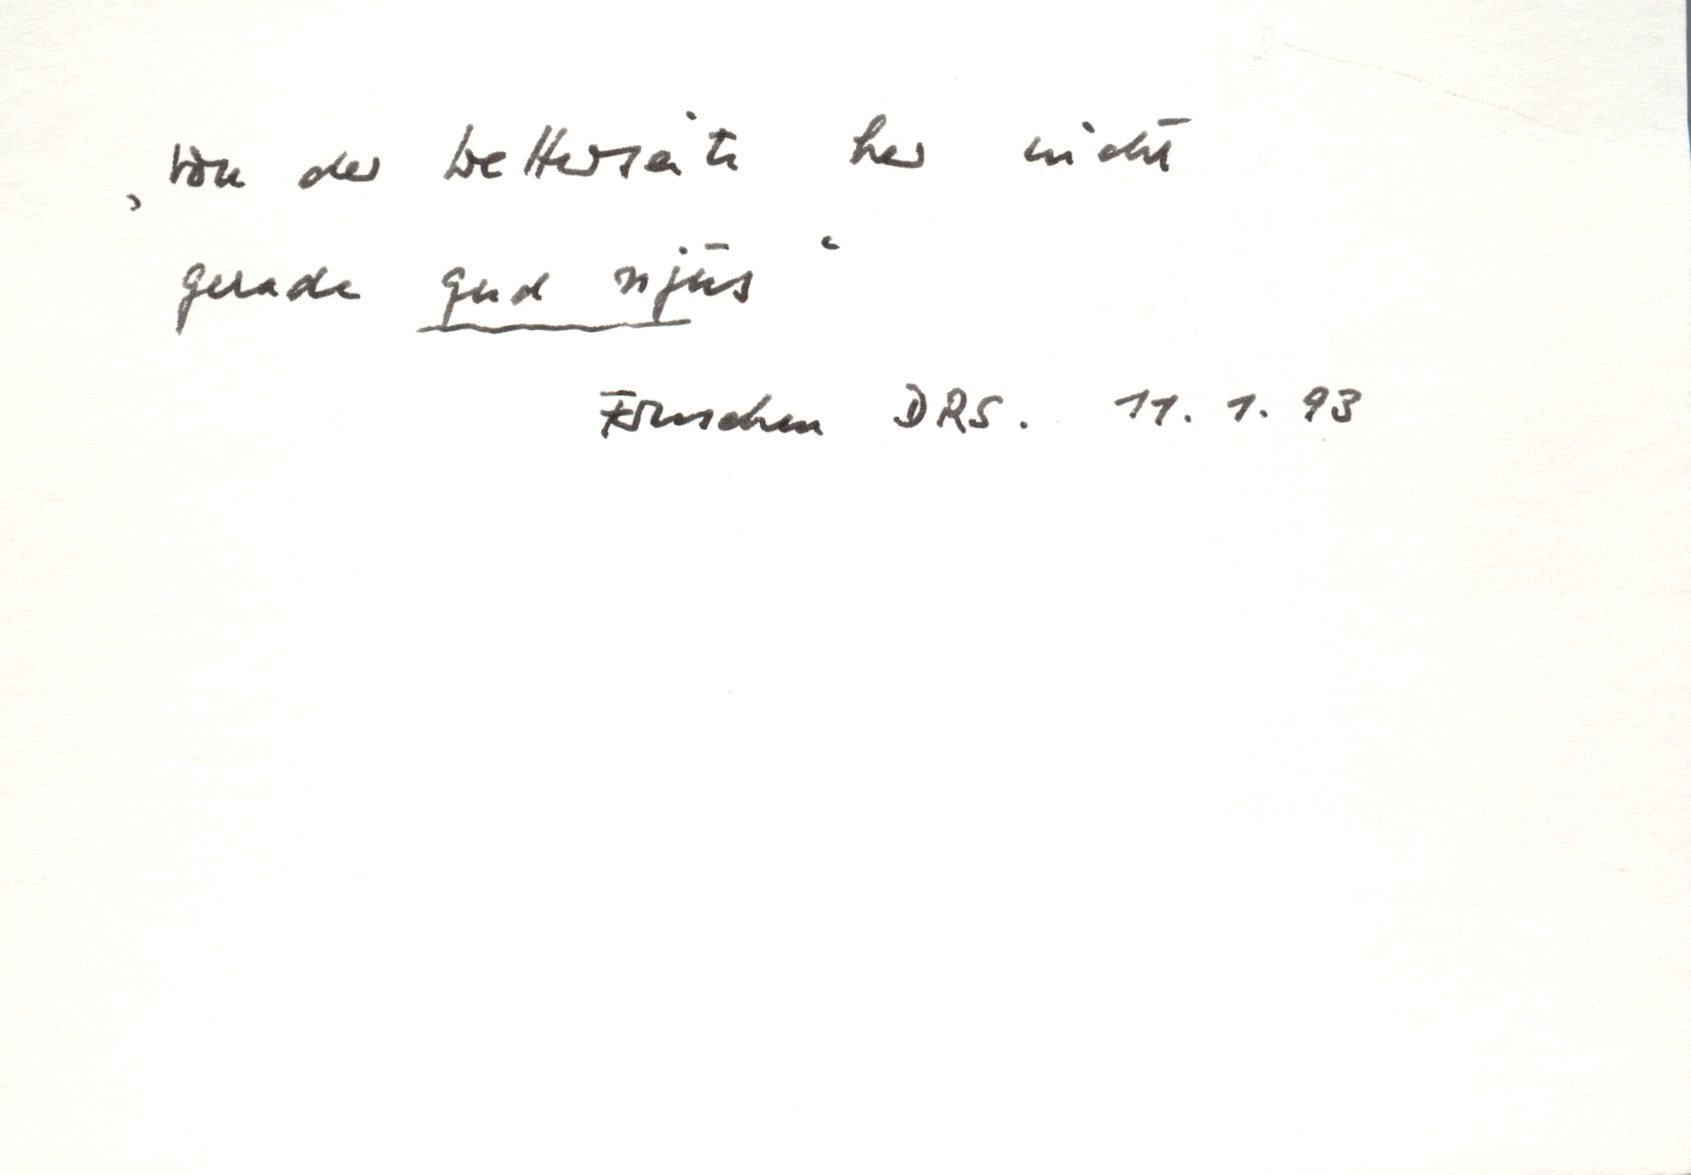 ‚von der Wetterseite her nicht
gerade gud njūs‘
Fernsehen DRS. 11. 1. 93